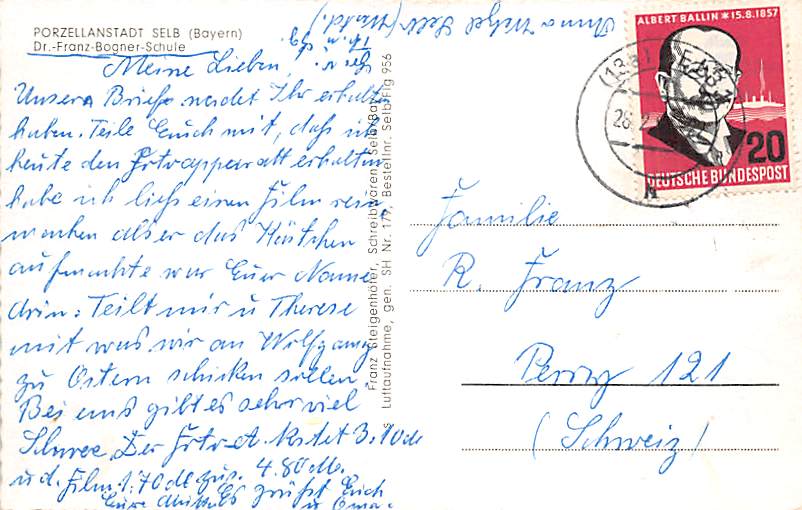 PORZELLANSTADT SELB (Bayern)
Dr.-Franz-Bogner-Schule
Meine Lieben,
Unsere Briefe werdet Ihr erhalten
haben. Teile Euch mit, daß ich
heute den Fotoapparatt erhalten
habe ich ließ einen Film rein
machen als er das Kästchen
aufmachte war Euer Name
drin: Teilt mir u Therese
mit was wir an Wolfgang
zu Ostern schicken sollen.
Bei uns gibt es sehr viel
Schnee. Der Foto-A. kostet 3.10 dM
u. d. Film 1.70 dM zus. 4.80 dM.
Eure grüßt Euch
u Oma
Anna Selb
Franz Steigenhöfer, Schreibwaren, Selb/Bay.
Luftaufnahme, gen. SH Nr. 179, Bestellnr. Selb/Flg 956
ALBERT BALLIN * 15.8.1857
20
DEUTSCHE BUNDESPOST
(13a)
Familie
R. Franz
Perry 121
(Schweiz)